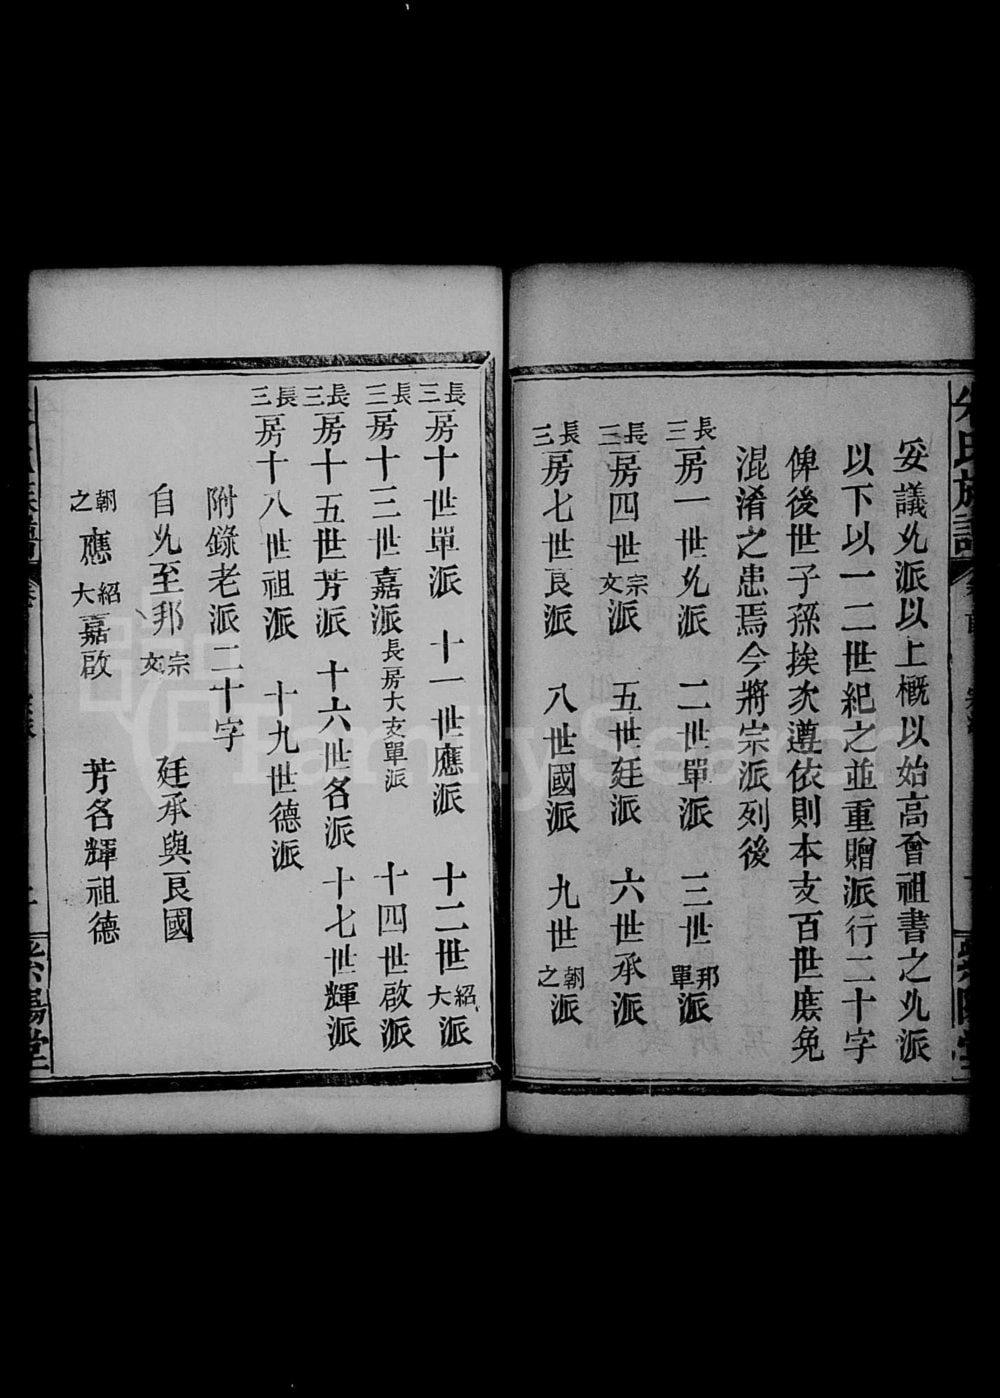 妥議允派以上概以始高曾祖書之允派
以下以一二世紀之並重贈派行二十字
俾後世子孫挨次遵依則本支百世庶免
混淆之患焉今將宗派列後
長三房一世允派　二世單派　三世邦單派
長三房四世宗文派　五世廷派　六世承派
長三房七世良派　八世國派　九世朝之派
朱氏族譜
紫陽堂
長三房十世單派　十一世應派　十二世紹大派
長三房十三世嘉派長房大支單派　十四世啟派
長三房十五世芳派　十六世名派　十七世輝派
長三房十八世祖派　十九世德派
附錄老派二十字
自允至邦宗文　廷承與良國
朝之應紹大嘉啟　芳名輝祖德
紫陽堂
FamilySearch